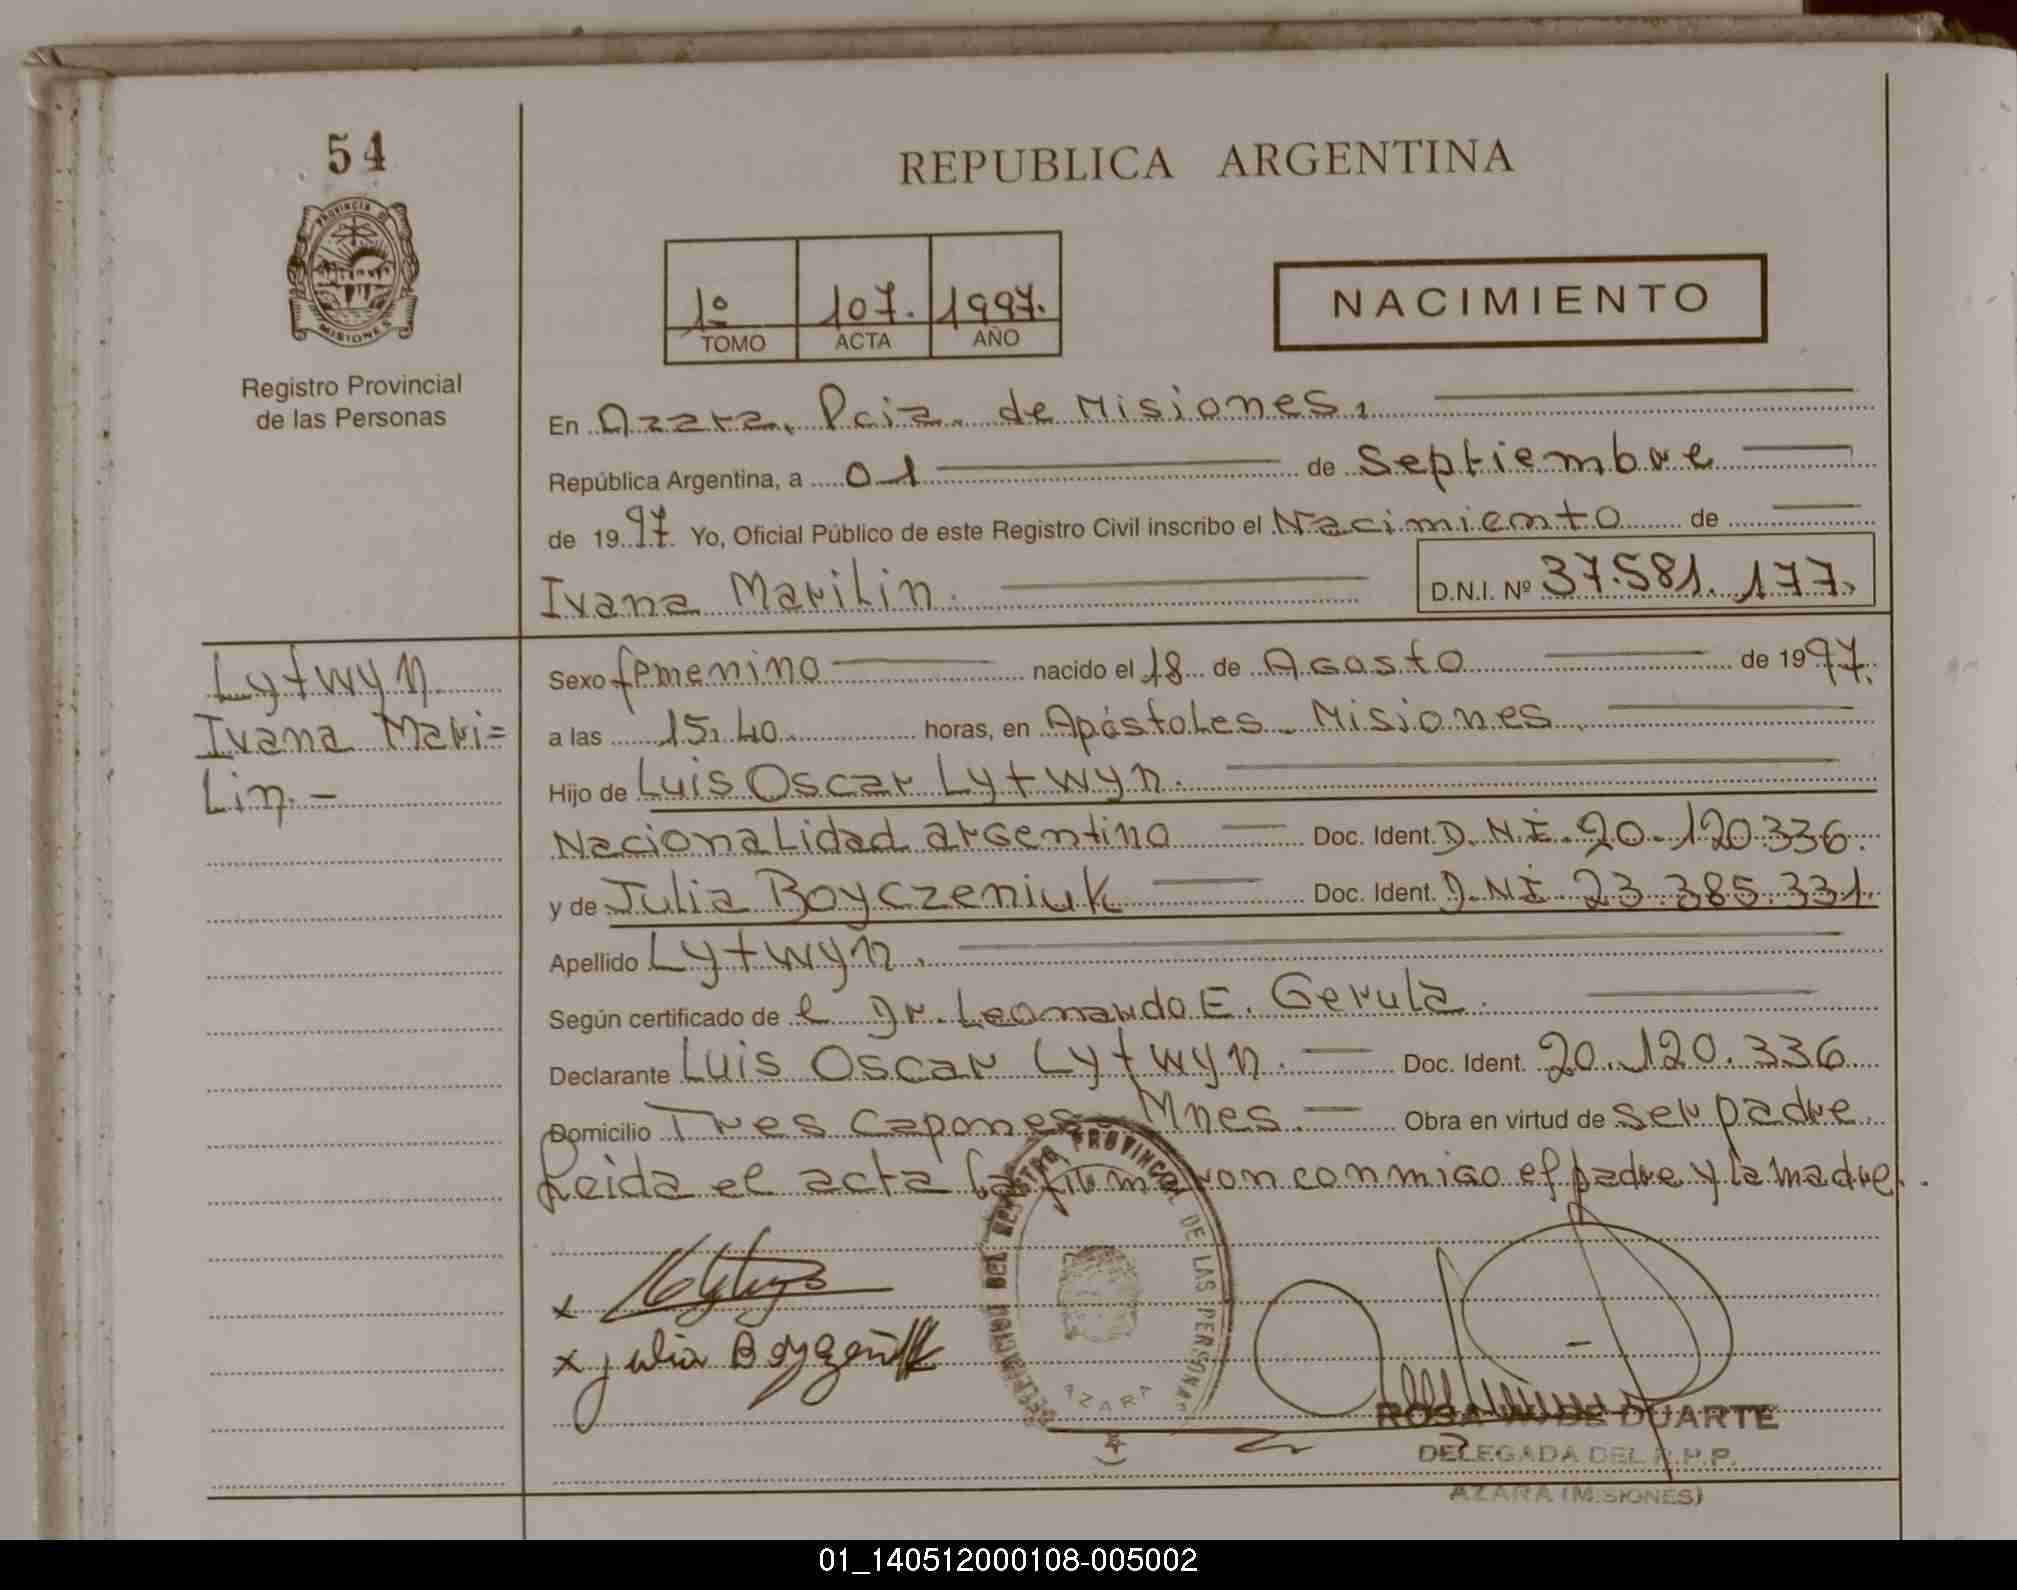 54
PROVINCIA DE
MISIONES
Registro Provincial
de las Personas
REPUBLICA ARGENTINA
1º 107. 1997.
TOMO ACTA AÑO
NACIMIENTO
En Azara, Pcia. de Misiones.
República Argentina, a 01 de Septiembre
de 1997. Yo, Oficial Público de este Registro Civil inscribo el Nacimiento de
Ivana Marilin. D.N.I. Nº 37.581.177.
Lytwyn
Ivana Mari=
Lin.-
Sexo femenino nacido el 18 de Agosto de 1997.
a las 15:40 horas, en Apóstoles Misiones
Hijo de Luis Oscar Lytwyn.
Nacionalidad argentino Doc. Ident. D.N.I. 20.120336.
y de Julia Boyczeniuk Doc. Ident. D.N.I. 23.385.331.
Apellido Lytwyn.
Según certificado de el Dr. Leonardo E. Gerula.
Declarante Luis Oscar Lytwyn. Doc. Ident. 20.120.336
Domicilio Tres Capones - Mnes. Obra en virtud de ser padre
Leida el acta la firmaron conmigo el padre y la madre.
x
x Julia
DEL REGISTRO PROVINCIAL DE LAS PERSONAS
AZARA
ROSA W. DE DUARTE
DELEGADA DEL R.P.P.
AZARA (MISIONES)
01_140512000108-005002